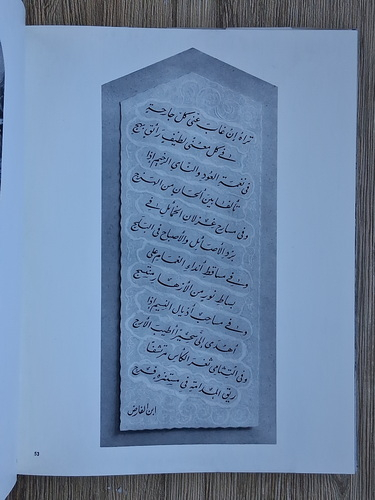 تراه إن غاب عني كل جارحة
في كل معنى لطيف رائق بهج
في نغمة العود والناي الرخيم إذا
تألفا بين ألحان من الهزج
وفي مسارح غزلان الخمائل في
برد الأصائل والأصباح في البلج
وفي مساقط أنداء الغمام على
بساط نور من الأزهار منتسج
وفي مساحب أذيال النسيم إذا
أهدى إلي سحيرا أطيب الأرج
وفي التثامي ثغر الكأس مرتشفا
ريق المدامة في مستنزه فرج
ابن الفارض
53